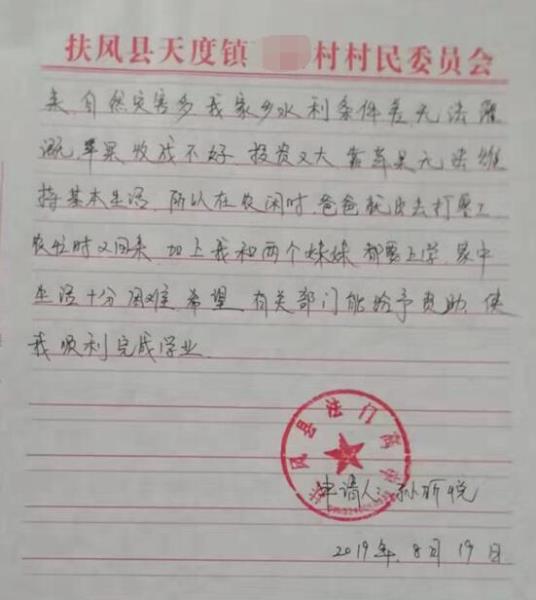 扶风县天度镇 村村民委员会
来,自然灾害多我家乡水利条件差,无法灌
溉,苹果收成不好 投资又大 靠苹果无法维
持基本生活,所以在农闲时,爸爸就出去打零工
农忙时又回来 加上我和两个妹妹都要上学,家中
生活十分困难,希望 有关部门能给予资助,使
我顺利完成学业.
扶风县法门高中
申请人:孙昕悦
2019年8月19日